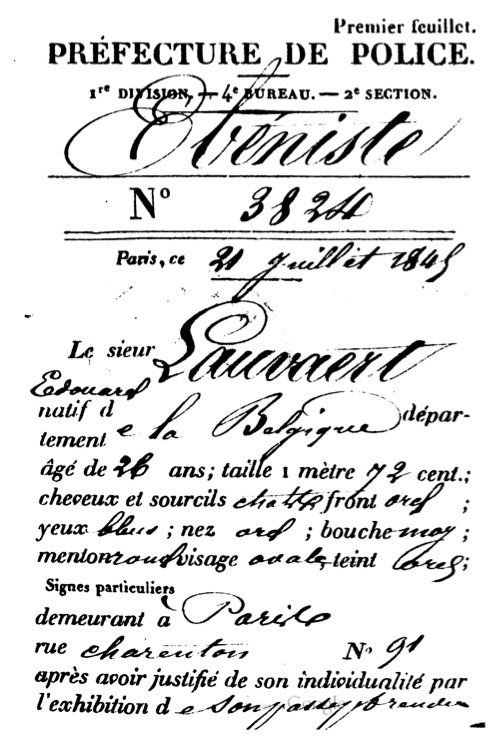 Premier feuillet.
PRÉFECTURE DE POLICE.
1re DIVISION, — 4e BUREAU. — 2e SECTION.
Ebéniste
No 3824
Paris, ce 21 Juillet 1845
Le sieur Lauvaert
Edouard
natif de la Belgique dépar-
tement
âgé de 26 ans; taille 1 mètre 72 cent.;
cheveux et sourcils chatts front ord ;
yeux bleus ; nez ord ; bouche moy ;
menton rond visage ovale teint ord;
Signes particuliers
demeurant à Paris
rue charenton No 91
après avoir justifié de son individualité par
l'exhibition de son passeport